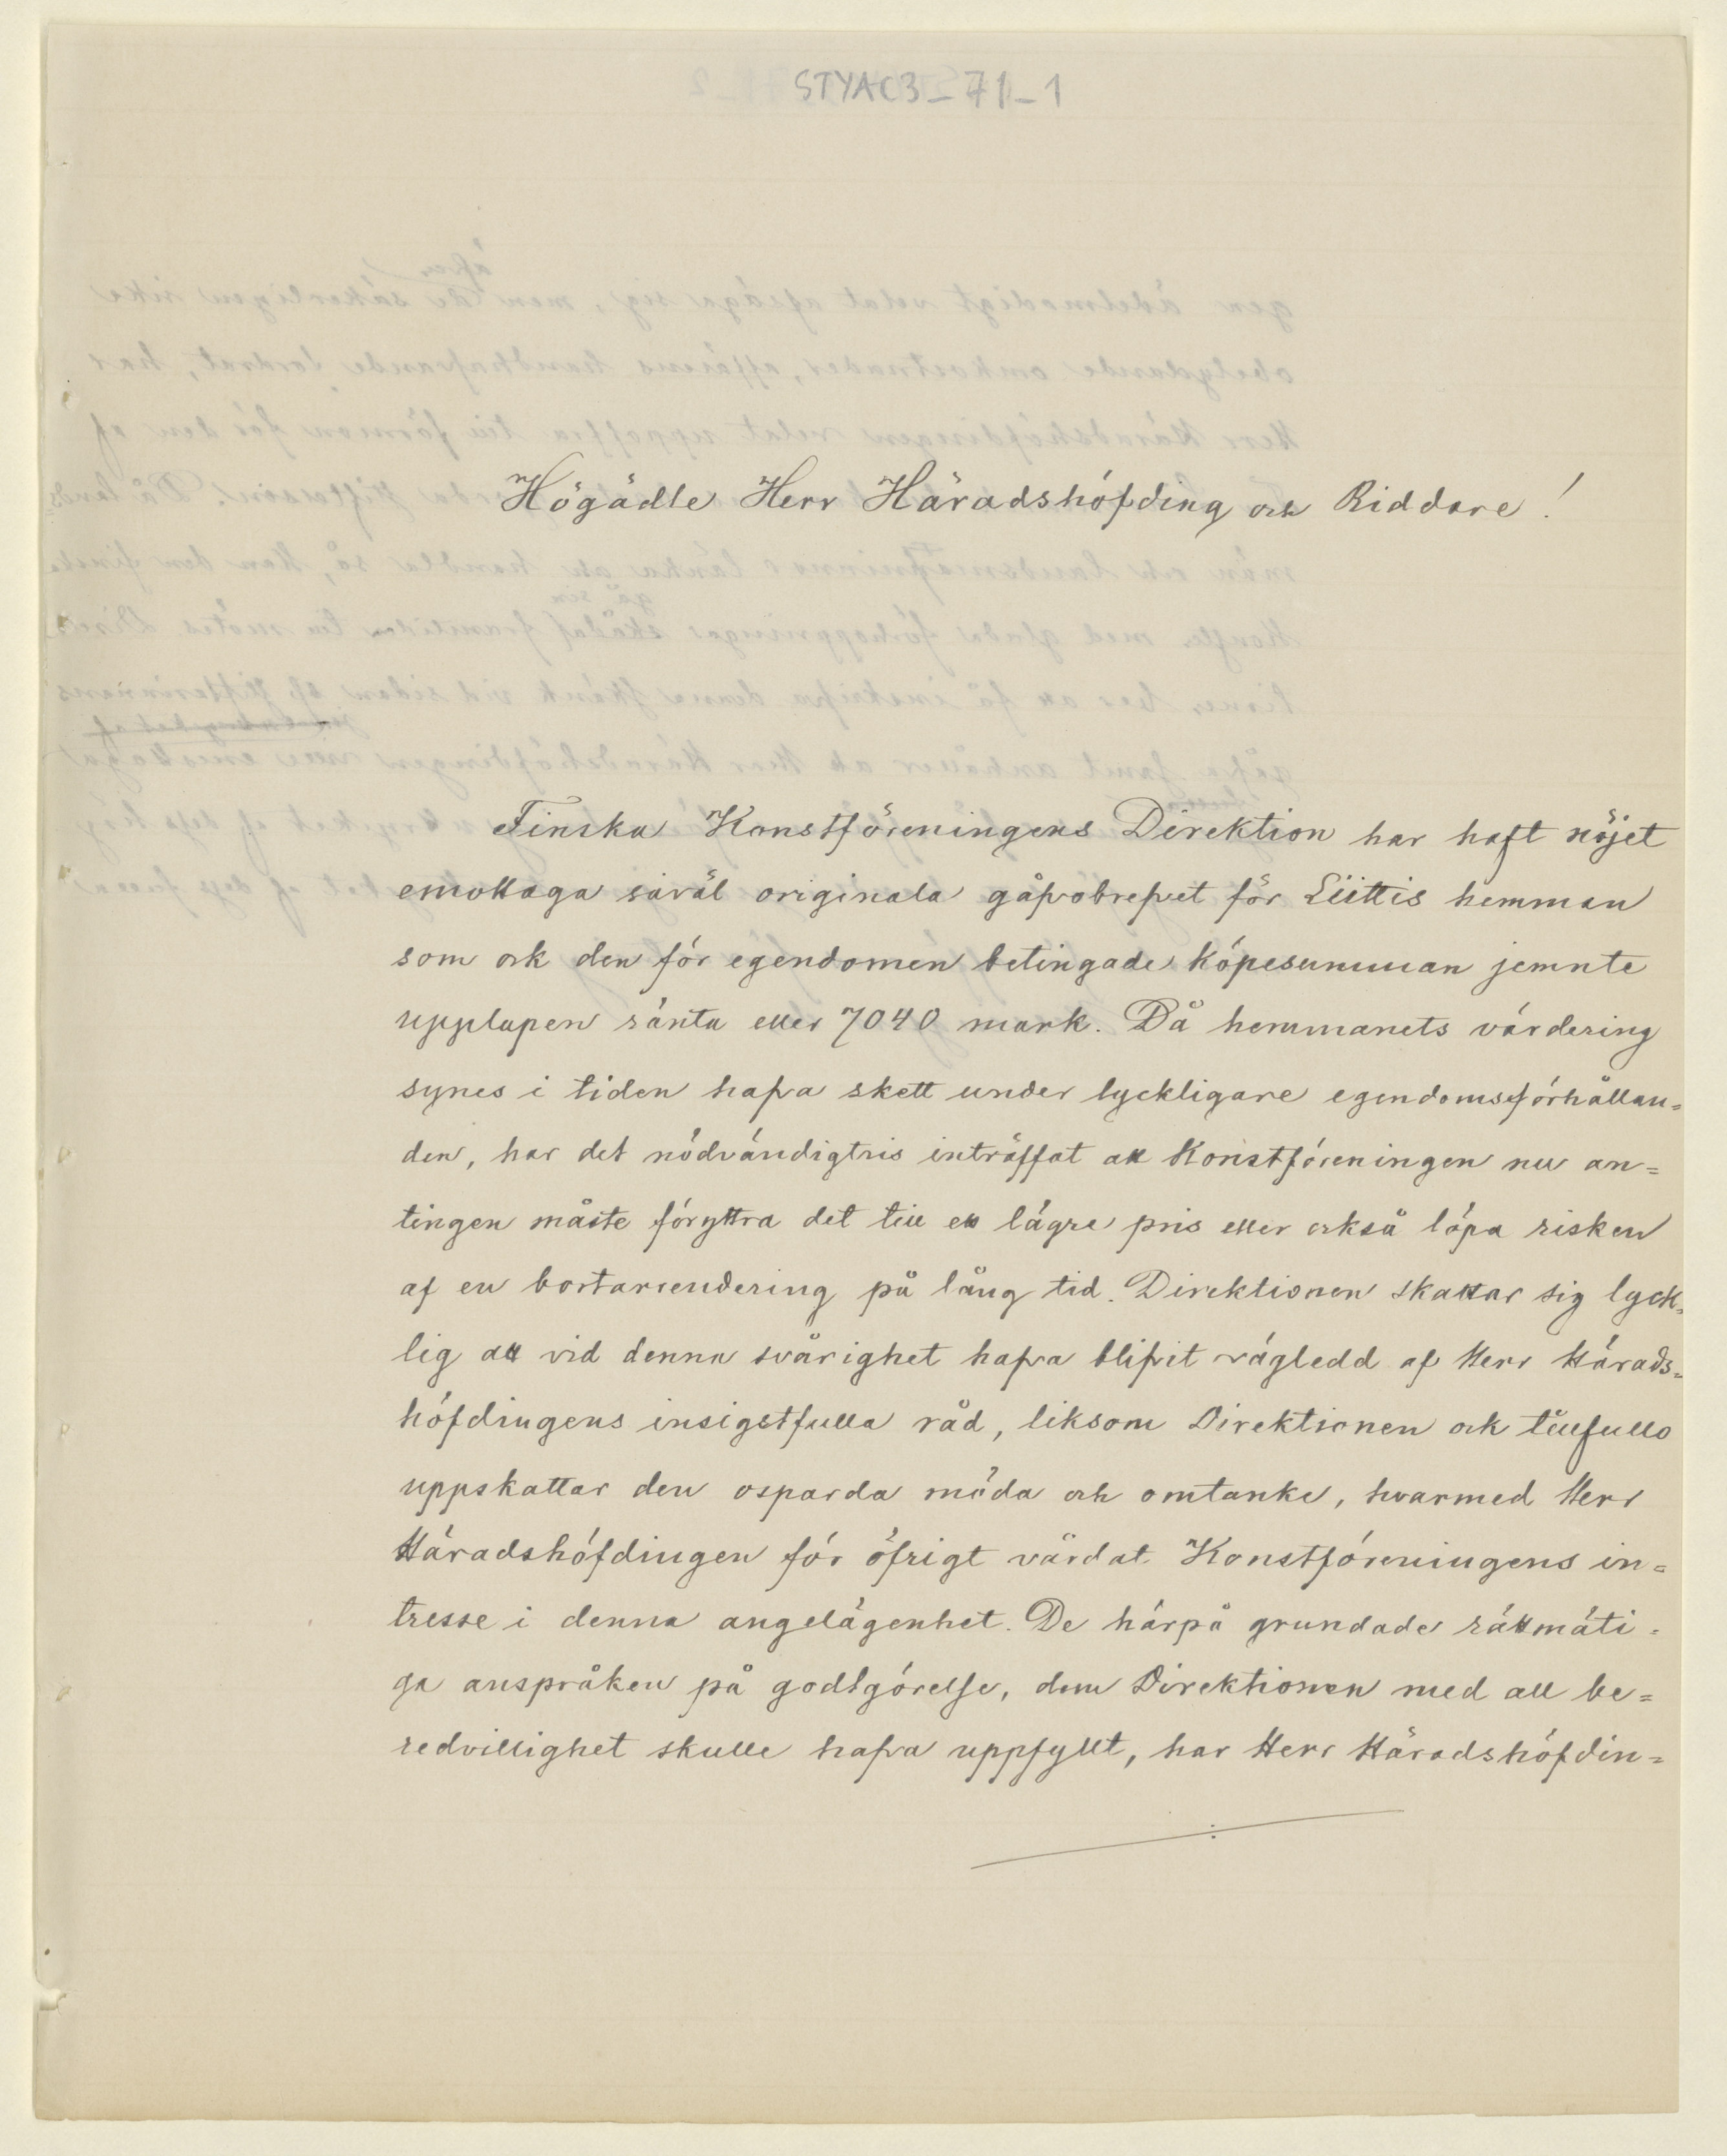 STYAC3_71_1
Högädle Herr Häradshöfding och Riddare!
Finska Konstföreningens Direktion har haft nöjet
emottaga såväl originala gåfvobrefvet för Liittis hemman
som ock den för egendomen betingade köpesumman jemnte
upplupen ränta eller 7040 mark. Då hemmanets värdering
synes i tiden hafva skett under lyckligare egendomsförhållan=
den, har det nödvändigtvis inträffat att Konstföreningen nu an=
tingen måste föryttra det till ett lägre pris eller också löpa risken
af en bortarrendering på lång tid. Direktionen skattar sig lyck=
lig att vid denna svårighet hafva blifvit vägledd af Herr Härads=
höfdingens insigtsfulla råd, liksom Direktionen ock tillfullo
uppskattar den osparda möda och omtanke, hvarmed Herr
Häradshöfdingen för öfrigt vårdat Konstföreningens in=
tresse i denna angelägenhet. De härpå grundade rättmäti=
ga anspråken på godtgörelse, dem Direktionen med all be=
redvillighet skulle hafva uppfyllt, har Herr Häradshöfdin=